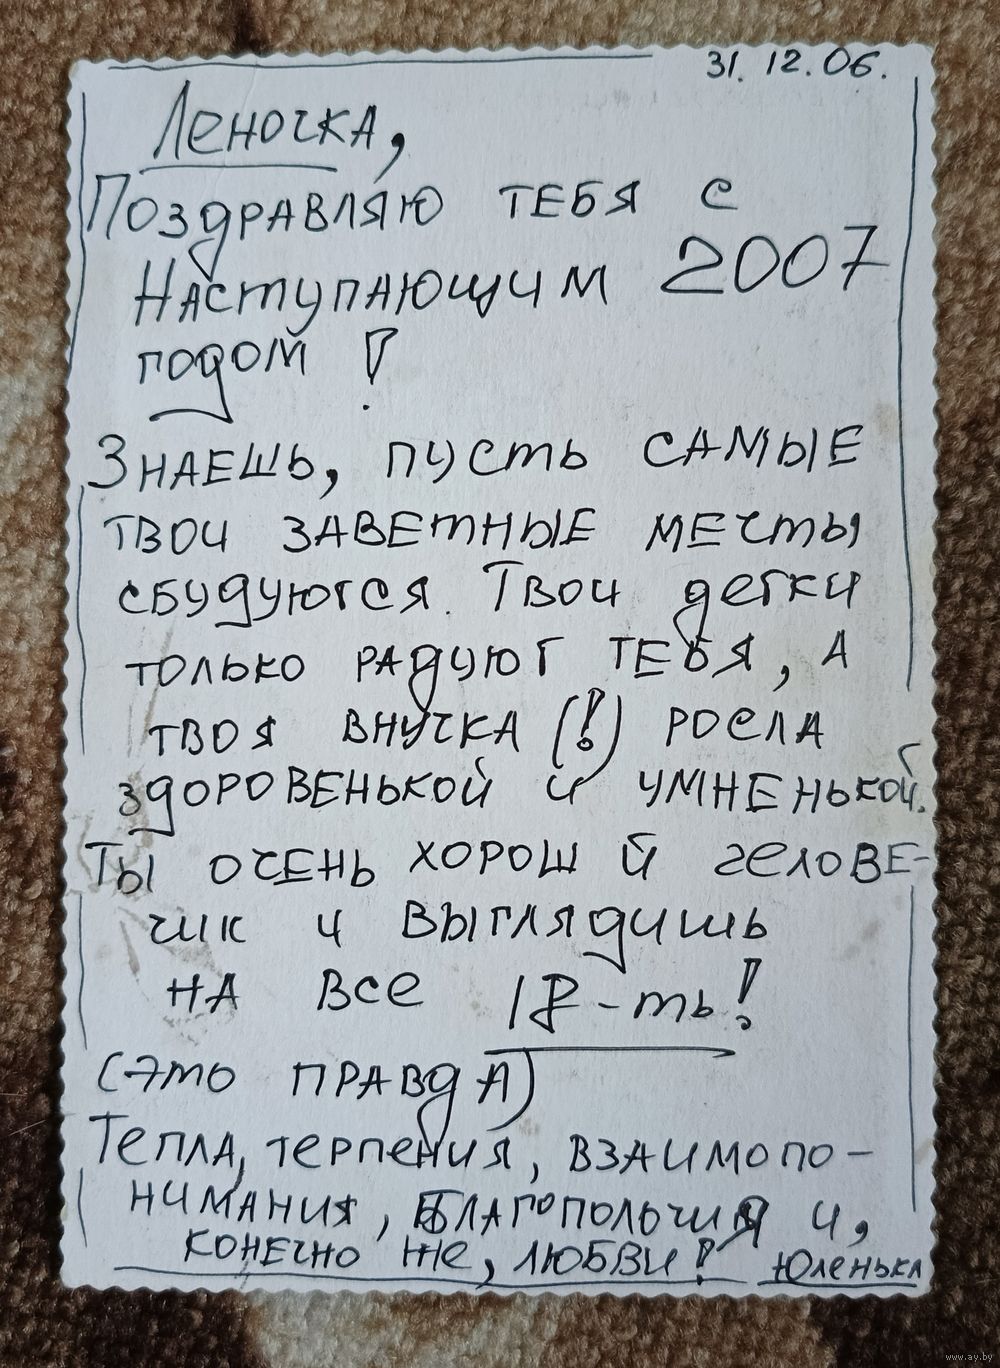 31.12.06.
Леночка,
Поздравляю тебя с
Наступающим 2007
годом!
Знаешь, пусть самые
твои заветные мечты
сбудуются. Твои детки
только радуют тебя, а
твоя внучка (!) росла
здоровенькой и умненькой.
Ты очень хороший челове-
чик и выглядишь
на все 18-ть!
(Это правда)
Тепла, терпения, взаимопо-
нимания, благополучия и,
конечно же, любви!
Юленька
www.ay.by